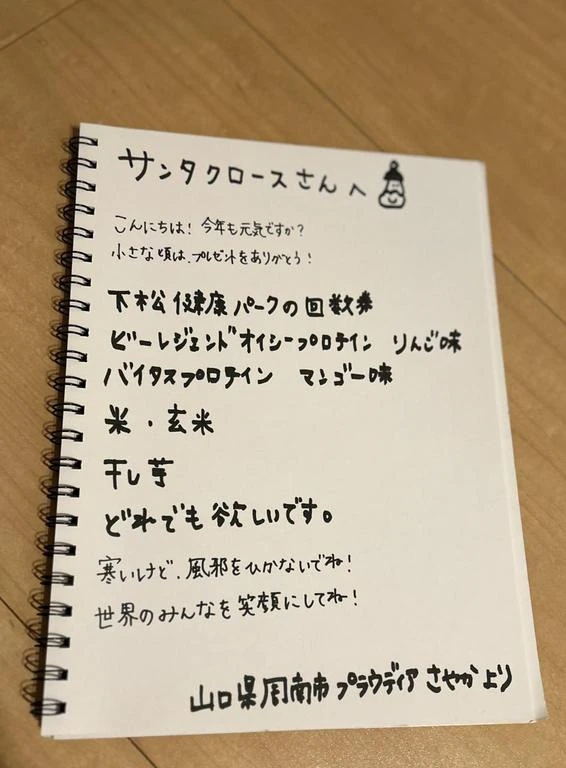 サンタクロースさんへ
こんにちは! 今年も元気ですか?
小さな頃は、プレゼントをありがとう!
下松健康パークの回数券
ビーレジェンドオイシープロテイン りんご味
バイタスプロテイン マンゴー味
米・玄米
干し芋
どれでも欲しいです。
寒いけど、風邪をひかないでね!
世界のみんなを笑顔にしてね!
山口県周南市 プラウディア さやか より